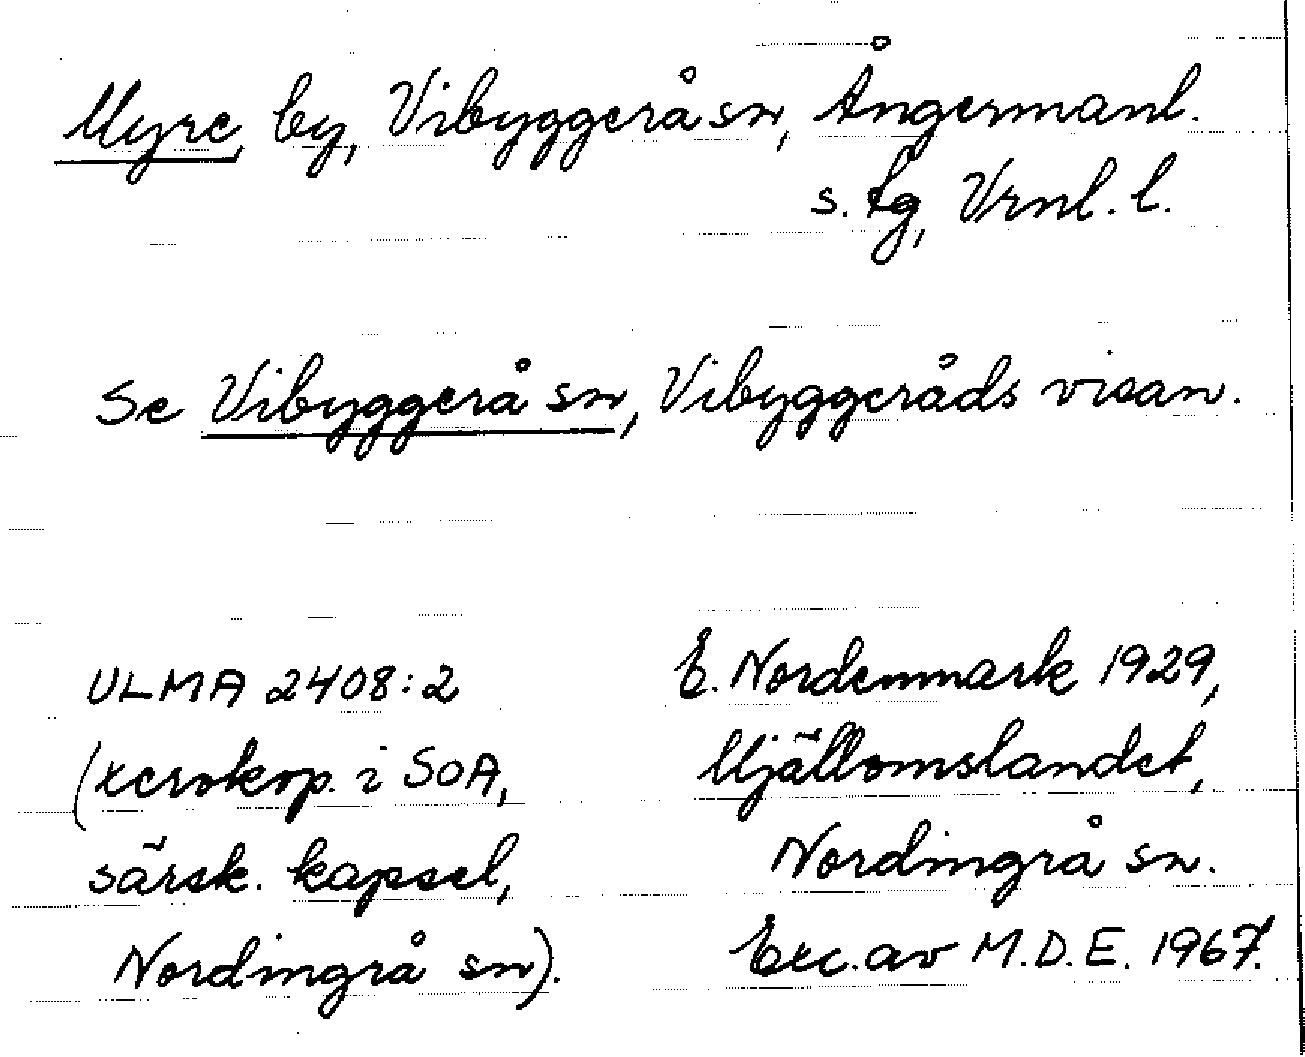 Myre, by, Vibyggerå sn, Ångermanl.
s. tg, Vrnl. l.
Se Vibyggerå sn, Vibyggeråds visan.
ULMA 2408:2
(xerokop. i SOA,
särsk. kapsel,
Nordingrå sn).
E. Nordenmark 1929,
Mjällomslandet,
Nordingrå sn.
Exc. av M.D.E. 1967.